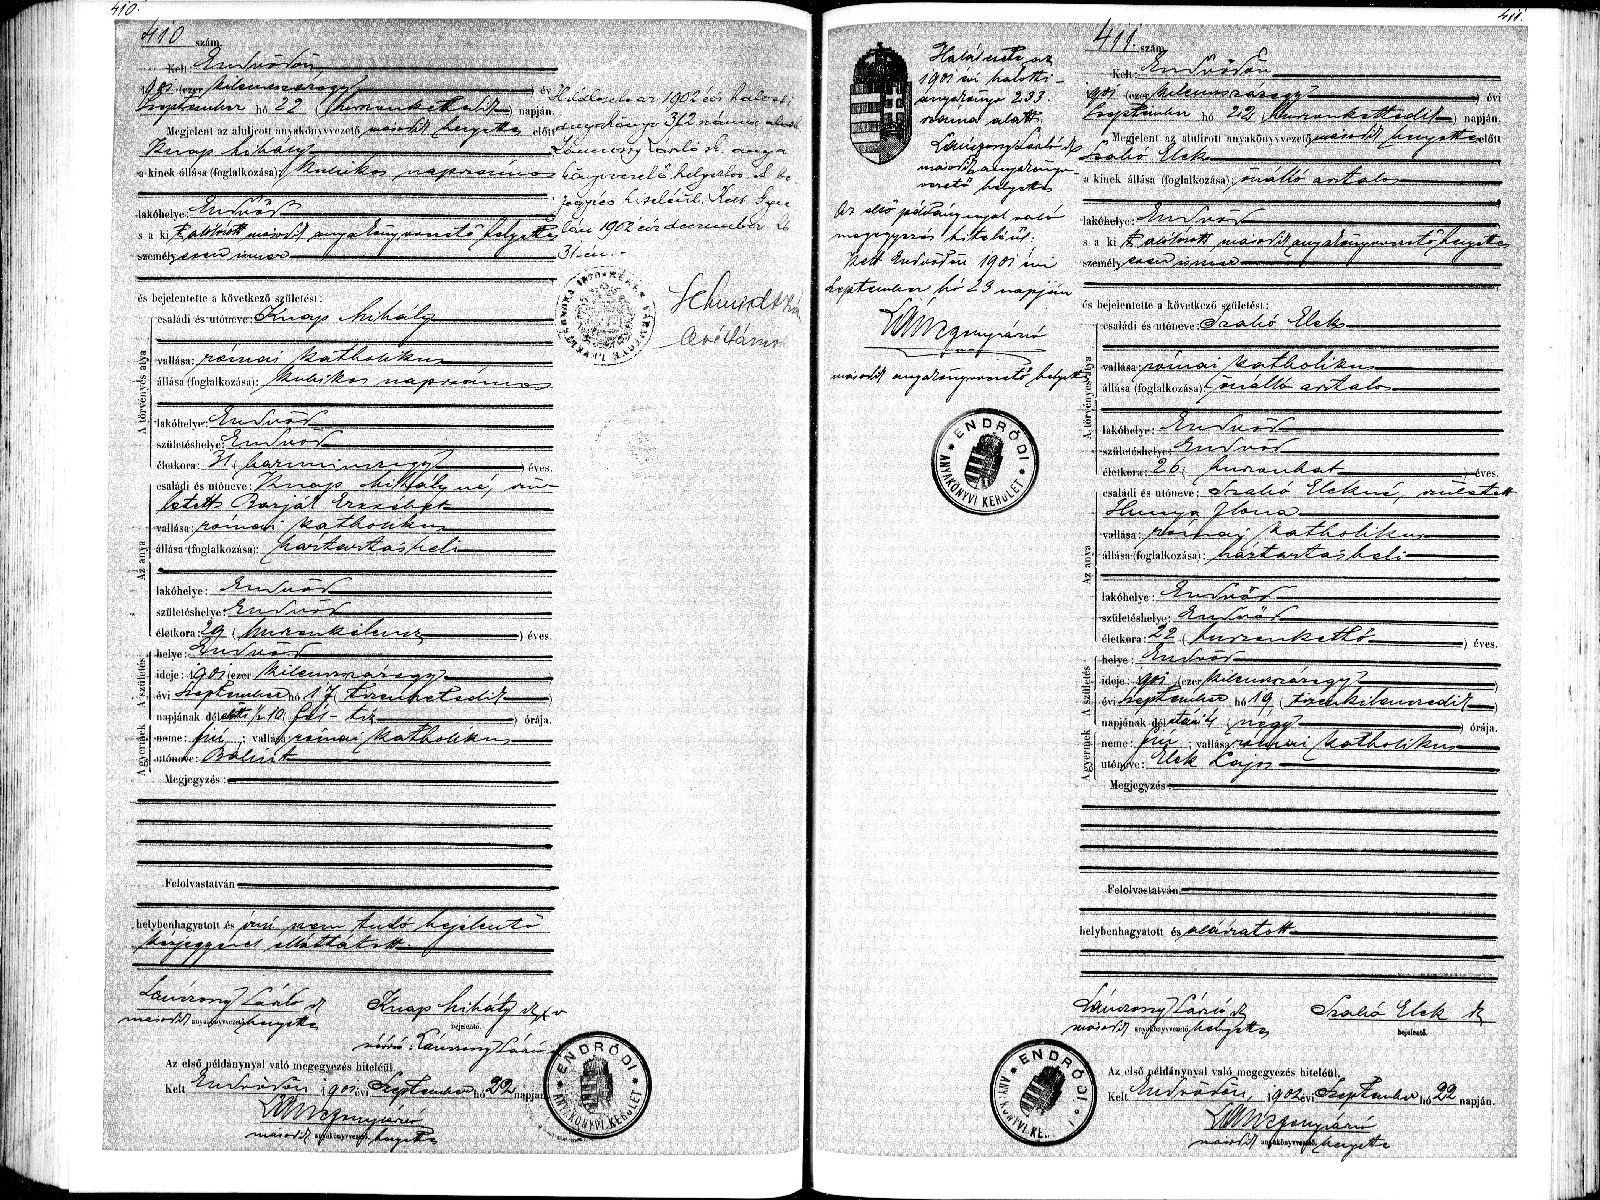 410.
410 szám.
Kelt: Endrődön
1901 (ezer kilenczszázegy) évi
Szeptember hó 22 (huszonkettedik) napján.
Megjelent az alulirott anyakönyvvezető második helyettes előtt
Knap Mihály
a kinek állása (foglalkozása): kubikos napszámos
lakóhelye: Endrőd
s a kit alólirott második anyakönyvvezető helyettes
személyesen ismer
és bejelentette a következő születést:
A törvényes atya
családi és utóneve: Knap Mihály
vallása: római katholikus
állása (foglalkozása): kubikos napszámos
lakóhelye: Endrőd
születéshelye: Endrőd
életkora: 31 (harminczegy) éves.
Az anya
családi és utóneve: Knap Mihályné, szü-
letett Barját Erzsébet
vallása: római katholikus
állása (foglalkozása): háztartásbeli
lakóhelye: Endrőd
születéshelye: Endrőd
életkora: 29 (huszonkilencz) éves.
A születés
helye: Endrőd
ideje: 1901 (ezer kilenczszázegy)
évi Szeptember hó 17 (tizenhetedik)
napjának délelőtti ½ 10 (fél-tíz) órája.
A gyermek
neme: fiú; vallása: római katholikus
utóneve: Bálint
Megjegyzés:
Felolvastatván
helybenhagyatott és írni nem tudó bejelentő
kézjegyével elláttatott
Lánczony László
második anyakönyvvezető helyettes
Knap Mihály
bejelentő.
Az első példánynyal való megegyezés hiteléül.
Kelt Endrődön, 1901 évi Szeptember hó 22 napján
második anyakönyvvezető helyettes
ENDRŐDI ANYAKÖNYVI KERÜLET
Elhalálozás az 1902 évi halotti
anyakönyv 312 számú alatt
Kelt Gyu-
lán 1902 évi december hó
31-én.
Schmidt
411.
Halálesete az
1901 évi halotti
anyakönyv 233.
szám alatt.
Lánczony László
második anyakönyv-
vezető helyettes
Az első példánynyal való
megegyezés hiteléül:
Kelt Endrődön 1901 évi
Szeptember hó 23 napján
második anyakönyvvezető helyettes
ENDRŐDI ANYAKÖNYVI KERÜLET
411. szám
Kelt: Endrődön
1901 (ezer kilenczszázegy) évi
Szeptember hó 22 (huszonkettedik) napján.
Megjelent az alulirott anyakönyvvezető második helyettes előtt
Szabó Elek
a kinek állása (foglalkozása): önálló asztalos
lakóhelye: Endrőd
s a kit alólirott második anyakönyvvezető helyettes
személyesen ismer
és bejelentette a következő születést:
A törvényes atya
családi és utóneve: Szabó Elek
vallása: római katholikus
állása (foglalkozása): önálló asztalos
lakóhelye: Endrőd
születéshelye: Endrőd
életkora: 26 (huszonhat) éves.
Az anya
családi és utóneve: Szabó Elekné, született
Hunya Ilona
vallása: római katholikus
állása (foglalkozása): háztartásbeli
lakóhelye: Endrőd
születéshelye: Endrőd
életkora: 22 (huszonkettő) éves.
A születés
helye: Endrőd
ideje: 1901 (ezer kilenczszázegy)
évi Szeptember hó 19 (tizenkilenczedik)
napjának délutáni 4 (négy) órája.
A gyermek
neme: fiú; vallása: római katholikus
utóneve: Elek Lajos
Megjegyzés
Felolvastatván
helybenhagyatott és aláíratott
Lánczony László
második anyakönyvvezető, helyettes
Szabó Elek
bejelentő.
Az első példánynyal való megegyezés hiteléül,
Kelt Endrődön, 1901 évi Szeptember hó 22 napján.
második anyakönyvvezető helyettes
ENDRŐDI ANYAKÖNYVI KE